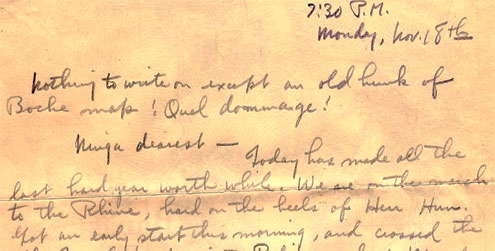 7:30 P.M.
Monday, Nov. 18th
Nothing to write on except an old hunk of
Boche map! Quel dommage!
dearest — Today has made all the
last hard year worth while. We are on the march
to the Rhine, hard on the heels of Herr Hun.
Got an early start this morning, and crossed the